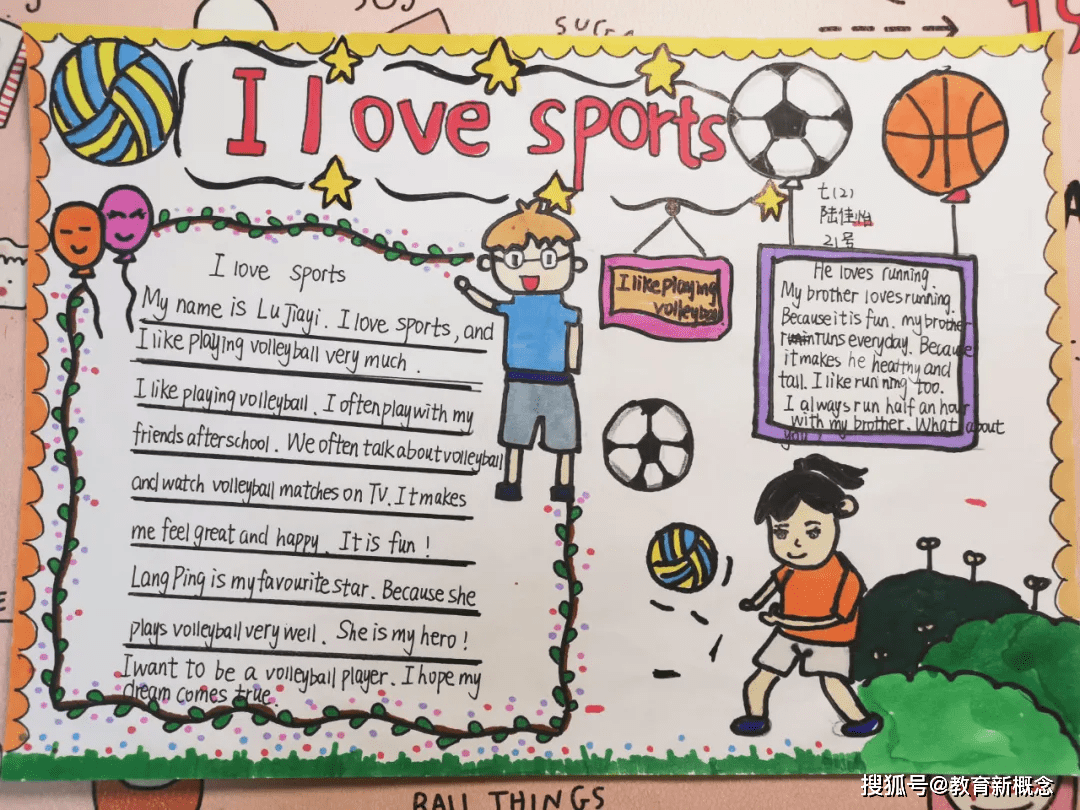 I love sports
七(2)
陆佳怡
21号
I love sports
My name is Lu Jiayi. I love sports, and
I like playing volleyball very much.
I like playing volleyball. I often play with my
friends after school. We often talk about volleyball
and watch volleyball matches on TV. It makes
me feel great and happy. It is fun!
Lang Ping is my favourite star. Because she
plays volleyball very well. She is my hero!
I want to be a volleyball player. I hope my
dream comes true.
I like playing
volleyball
He loves running.
My brother loves running.
Because it is fun. my brother
runs everyday. Because
it makes he healthy and
tall. I like running too.
I always run half an hour
with my brother. What about
you?
BALL THINGS
搜狐号@教育新概念